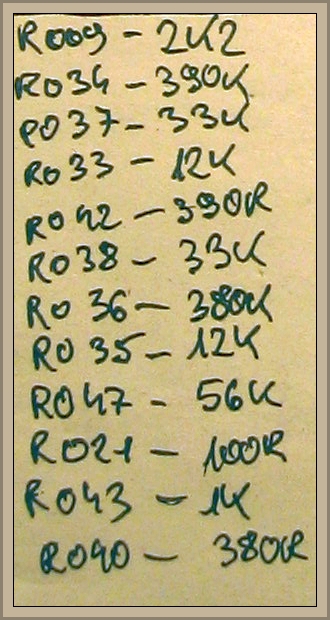 R009 - 2K2
R034 - 390K
R037 - 33K
R033 - 12K
R042 - 390R
R038 - 33K
R036 - 380K
R035 - 12K
R047 - 56K
R021 - 100R
R043 - 1K
R040 - 380R